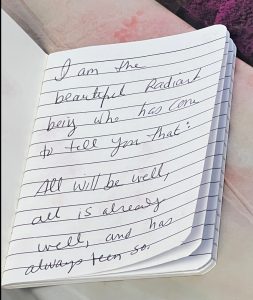 I am the
beautiful Radiant
being who has come
to tell you that:
All will be well,
all is already
well, and has
always been so.